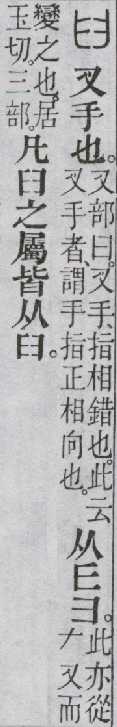 𦥑 叉手也。
又部曰。叉手、指相錯也。此云
叉手者、謂手指正相向也。
从𦥑。
此亦從
𠂇又而
變之也。居
玉切。三部。
凡𦥑之屬皆从𦥑。